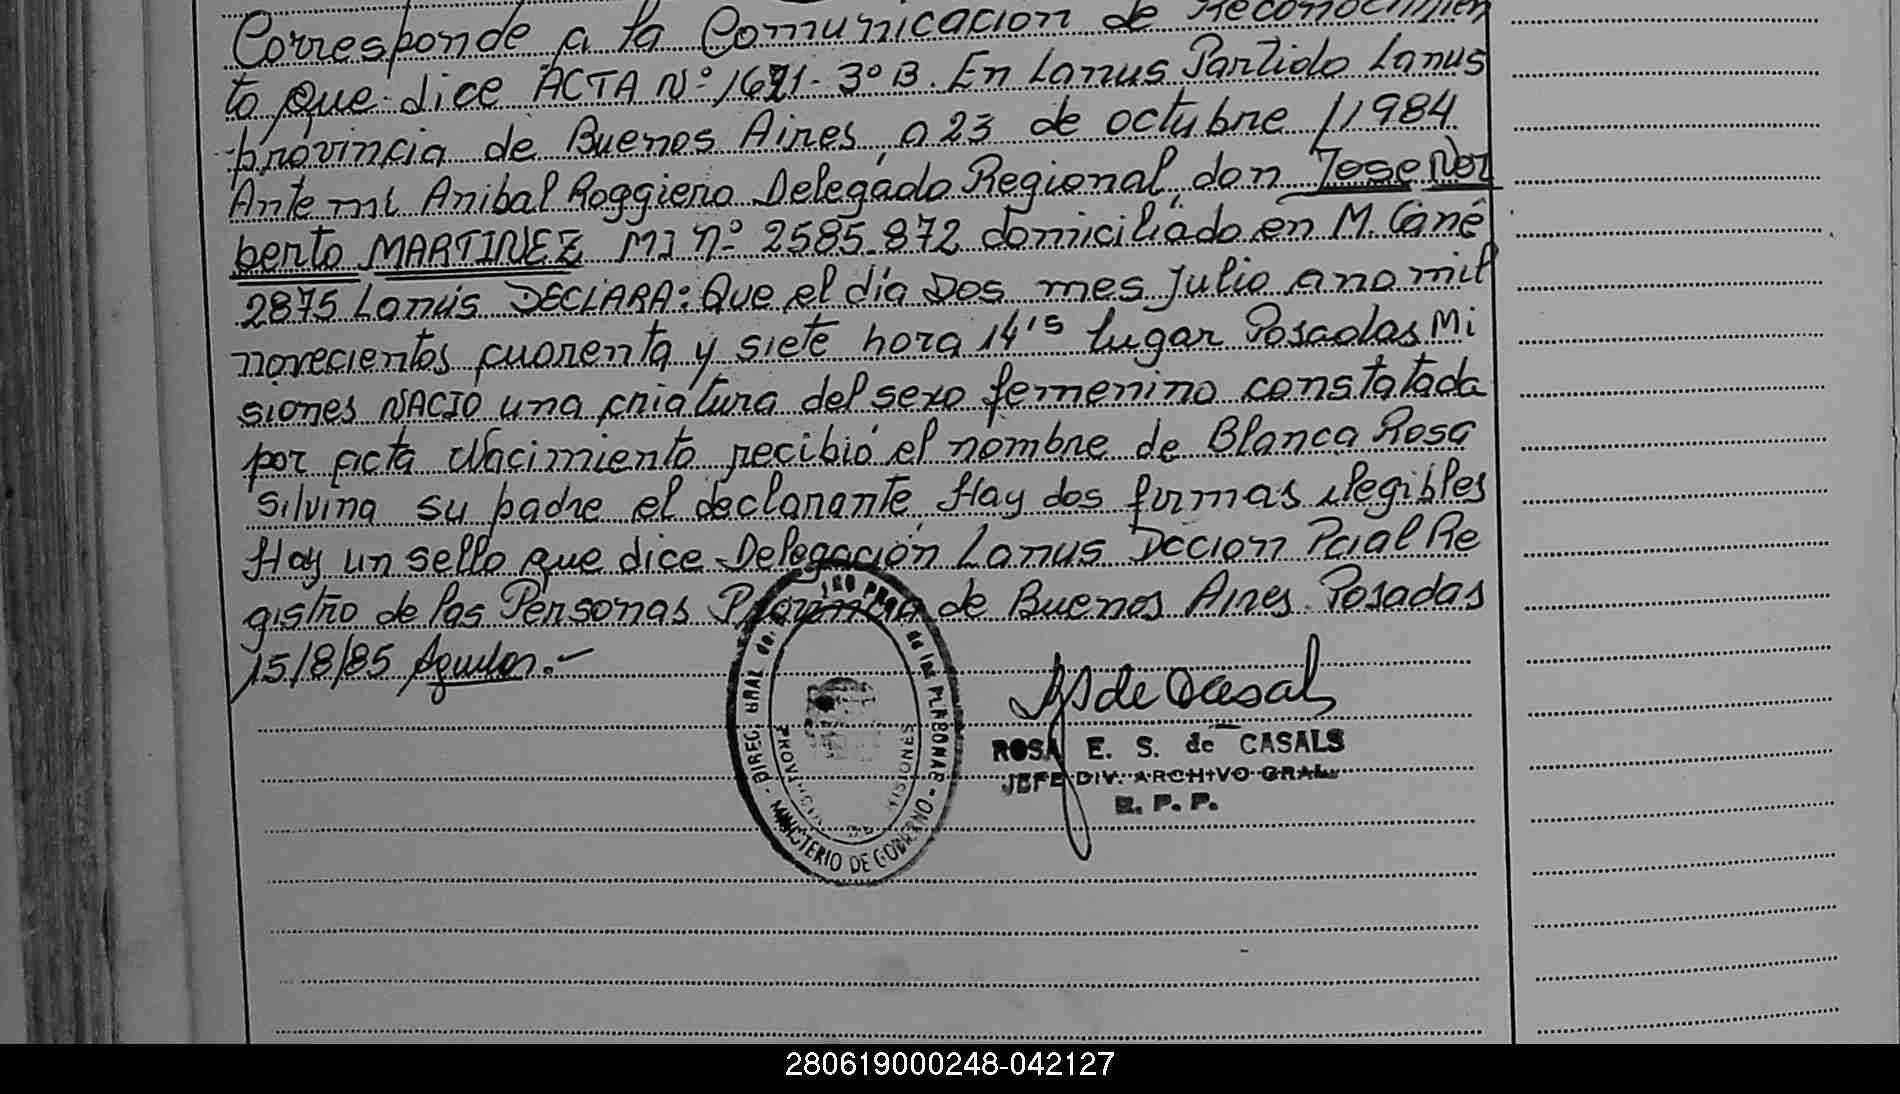 Corresponde a la Comunicacion de Reconocimien
to que dice ACTA Nº 1671-3º B. En Lanus Partido Lanus
provincia de Buenos Aires, a 23 de octubre /1984
Ante mi Anibal Roggiero Delegado Regional, don Jose Nor
berto MARTINEZ MI nº 2585.872 domiciliado en M. Cané
2875 Lanús DECLARA: Que el día Dos mes Julio ano mil
novecientos cuarenta y siete hora 14'15 lugar Posadas Mi
siones NACIO una criatura del sexo femenino constatada
por acta Nacimiento recibió el nombre de Blanca Rosa
Silvina su padre el declarante, Hay dos firmas ilegibles
Hay un sello que dice Delegación Lanus Dccion Pcial Re
gistro de las Personas Provincia de Buenos Aires. Posadas
15/8/85 Aguilar.-
DIREC. GRAL del PROV. de las PERSONAS - MINISTERIO DE GOBIERNO -
PROVINCIA DE MISIONES
de Casals
ROSA E. S. de CASALS
JEFE DIV. ARCHIVO GRAL.
R. P. P.
280619000248-042127